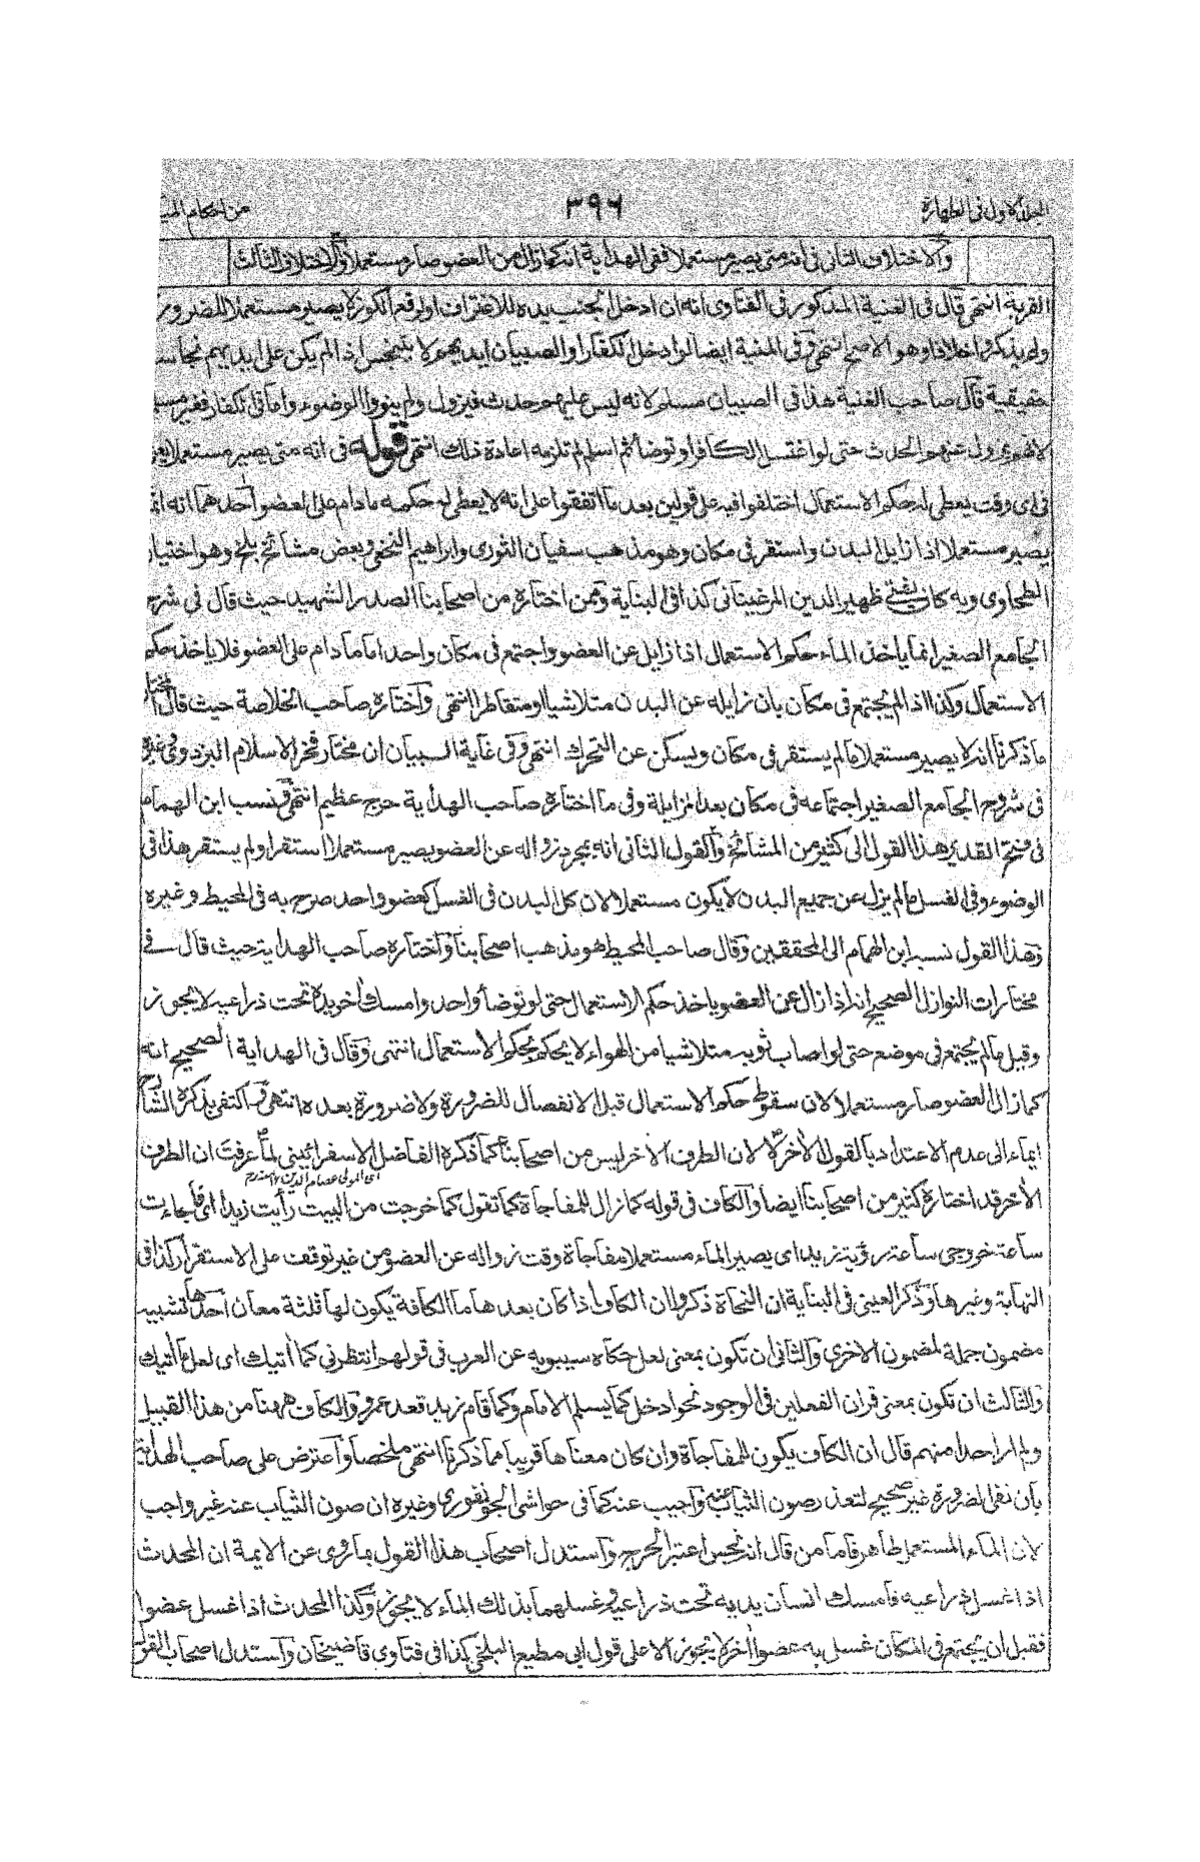 المجلد الاول فى الطهارة ٣٩٦ من احكام الميا
والاختلاف الثانى فى انه متى يصير مستعملا ففى الهداية انه كما زال من العضو صار مستعملا والاختلاف الثالث
القربة انتهى قال فى الغنية المذكور فى الفتاوى انه ان ادخل الجنب يده للاغتراف او لرفع الكوز لا يصير مستعملا للضرور
ولم يذكروا خلافا وهو الاصح انتهى وفى المنية ايضا لو ادخل الكفار او الصبيان ايديهم لا يتنجس اذا لم يكن على ايديهم نجاسة
حقيقية قال صاحب الغنية هذا فى الصبيان مسلم لانه ليس عليهم حدث فيزول ولم ينووا الوضوء واما فى الكفار فغير مسلم
لانه يزول عنهم الحدث حتى لو اغتسل الكافر او توضأ ثم اسلم لم تلزمه اعادة ذلك انتهى قوله فى انه متى يصير مستعملا يعنى
فى اى وقت يعطى له حكم الاستعمال اختلفوا فيه على قولين بعد ما اتفقوا على انه لا يعطى له حكمه ما دام على العضو احدهما انه انما
يصير مستعملا اذا زايل البدن واستقر فى مكان وهو مذهب سفيان الثورى وابراهيم النخعى وبعض مشائخ بلخ وهو اختيار
الطحاوى وبه كان يفتى ظهير الدين المرغينانى كذا فى البناية وممن اختاره من اصحابنا الصدر الشهيد حيث قال فى شرح
الجامع الصغير انما يأخذ الماء حكم الاستعمال اذا زايل عن العضو واجتمع فى مكان واحد اما ما دام على العضو فلا يأخذ حكم
الاستعمال وكذا اذا لم يجتمع فى مكان بان زايله عن البدن متلاشيا او متقاطرا انتهى واختاره صاحب الخلاصة حيث قال المختار
ما ذكرنا انه لا يصير مستعملا ما لم يستقر فى مكان ويسكن عن التحرك انتهى وفى غاية البيان ان مختار فخر الاسلام البزدوى وغيره
فى شروح الجامع الصغير اجتماعه فى مكان بعد المزايلة وفى ما اختاره صاحب الهداية حرج عظيم انتهى ونسب ابن الهمام
فى فتح القدير هذا القول الى كثير من المشائخ والقول الثانى انه بمجرد زواله عن العضو يصير مستعملا استقر او لم يستقر هذا فى
الوضوء وفى الغسل ما لم يزل عن جميع البدن لا يكون مستعملا لان كل البدن فى الغسل كعضو واحد صرح به فى المحيط وغيره
وهذا القول نسبه ابن الهمام الى المحققين وقال صاحب المحيط هو مذهب اصحابنا واختاره صاحب الهداية حيث قال فى
مختارات النوازل الصحيح انه اذا زال عن العضو يأخذ حكم الاستعمال حتى لو توضأ واحد وامسك اخر يده تحت ذراعيه لا يجوز
وقيل ما لم يجتمع فى موضع حتى لو اصاب ثوبه متلاشيا من الهواء لا يحكم بحكم الاستعمال انتهى وقال فى الهداية الصحيح انه
كما زال العضو صار مستعملا لان سقوط حكم الاستعمال قبل الانفصال للضرورة ولا ضرورة بعده انتهى واكتفى بذكره الشارح
ايماء الى عدم الاعتداد بالقول الاخر لا لان الطرف الاخر ليس من اصحابنا كما ذكره الفاضل الاسفرائينى لما عرفت ان الطرف
اى المولى عصام الدين ١٢ منه رح
الاخر قد اختاره كثير من اصحابنا ايضا والكاف فى قوله كما زال للمفاجاة كما تقول كما خرجت من البيت رأيت زيدا اى فاجاءت
ساعة خروجى ساعة رؤية زيد اى يصير الماء مستعملا مفاجاة وقت زواله عن العضو من غير توقف على الاستقرار كذا فى
النهاية وغيرها وذكر العينى فى البناية ان النحاة ذكروا ان الكاف اذا كان بعدها ما الكافة يكون لها ثلثة معان احدها تشبيه
مضمون جملة لمضمون الاخرى والثانى ان تكون بمعنى لعل حكاه سيبويه عن العرب فى قولهم انتظرنى كما اتيك اى لعل ما اتيك
والثالث ان تكون بمعنى قران الفعلين فى الوجود نحو ادخل كما يسلم الامام وكما قام زيد قعد عمرو والكاف ههنا من هذا القبيل
ولم ار احدا منهم قال ان الكاف يكون للمفاجاة وان كان معناها قريبا مما ذكرنا انتهى ملخصا واعترض على صاحب الهداية
بان نفى الضرورة غير صحيح لتعذر صون الثياب عنه واجيب عنه كما فى حواشى الجونفورى وغيره ان صون الثياب عنه غير واجب
لان الماء المستعمل طاهر واما من قال انه نجس اعتبر الحرج واستدل اصحاب هذا القول بما روى عن الايمة ان المحدث
اذا غسل ذراعيه فامسك انسان يديه تحت ذراعيه وغسلهما بذلك الماء لا يجوز وكذا المحدث اذا غسل عضوا
فقبل ان يجتمع فى المكان غسل به عضوا اخر لا يجوز الا على قول ابى مطيع البلخى كذا فى فتاوى قاضيخان واستدل اصحاب القول